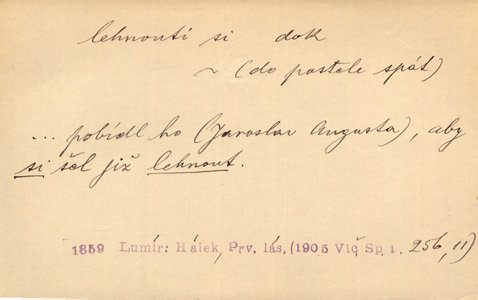 lehnouti si dok
~ (do postele spát)
... pobídl ho (Jaroslav Augusta), aby
si šel již lehnout.
1859 Lumír: Hálek, Prv. lás. (1905 Vlč Sp 1. 256, 11)